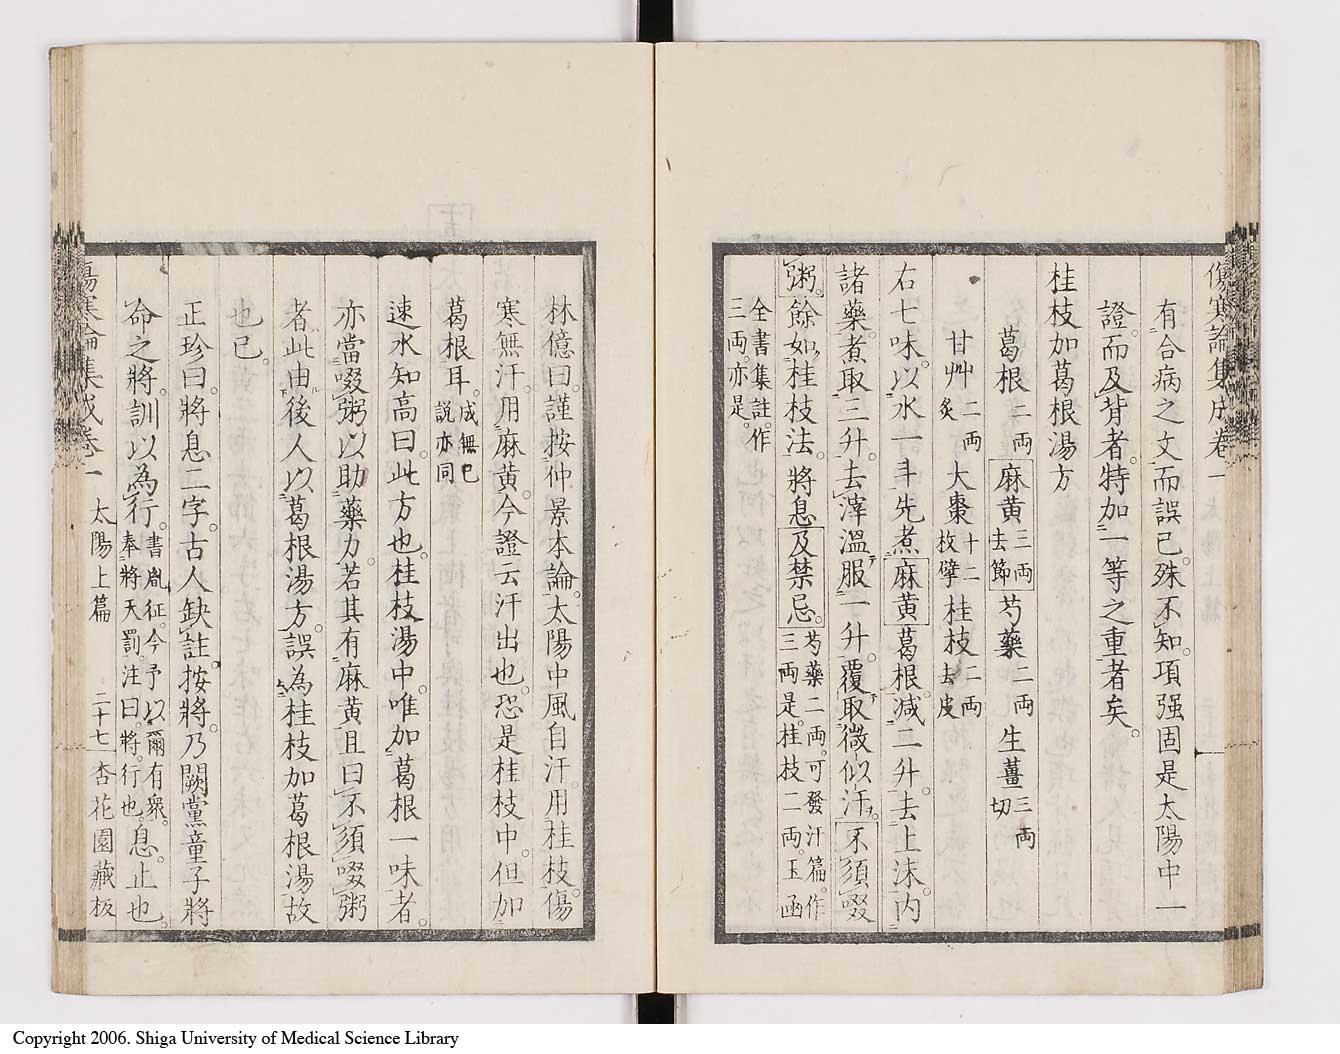 傷寒論集成卷一
有合病之文而誤已。殊不知項强固是太陽中一
證。而及背者。特加一等之重者矣。
桂枝加葛根湯方
葛根二両 麻黄三両去節 芍藥二両 生薑三両切
甘艸二両炙 大棗十二枚擘 桂枝二両去皮
右七味。以水一斗先煮麻黄葛根。減二升。去上沫。内
諸藥。煮取三升。去滓溫服一升。覆取微似汗。不須啜
粥。餘如桂枝法。將息及禁忌。芍藥二両。可發汗篇。作三両是。桂枝二両。玉函
全書集註。作三両。亦是。
林億曰。謹按仲景本論。太陽中風自汗。用桂枝。傷
寒無汗。用麻黄。今證云汗出也。恐是桂枝中。但加
葛根耳。成無已説亦同
速水知高曰。此方也。桂枝湯中。唯加葛根一味者。
亦當啜粥以助藥力。若其有麻黄且曰不須啜粥
者。此由後人以葛根湯方。誤為桂枝加葛根湯故
也已。
正珍曰。將息二字。古人缺註。按將。乃闕黨童子將
命之將。訓以為行。書胤征。今予以爾有衆。奉將天罰。注曰。將。行也。息。止也。
傷寒論集成卷一 太陽上篇 二十七 杏花園藏板
Copyright 2006. Shiga University of Medical Science Library